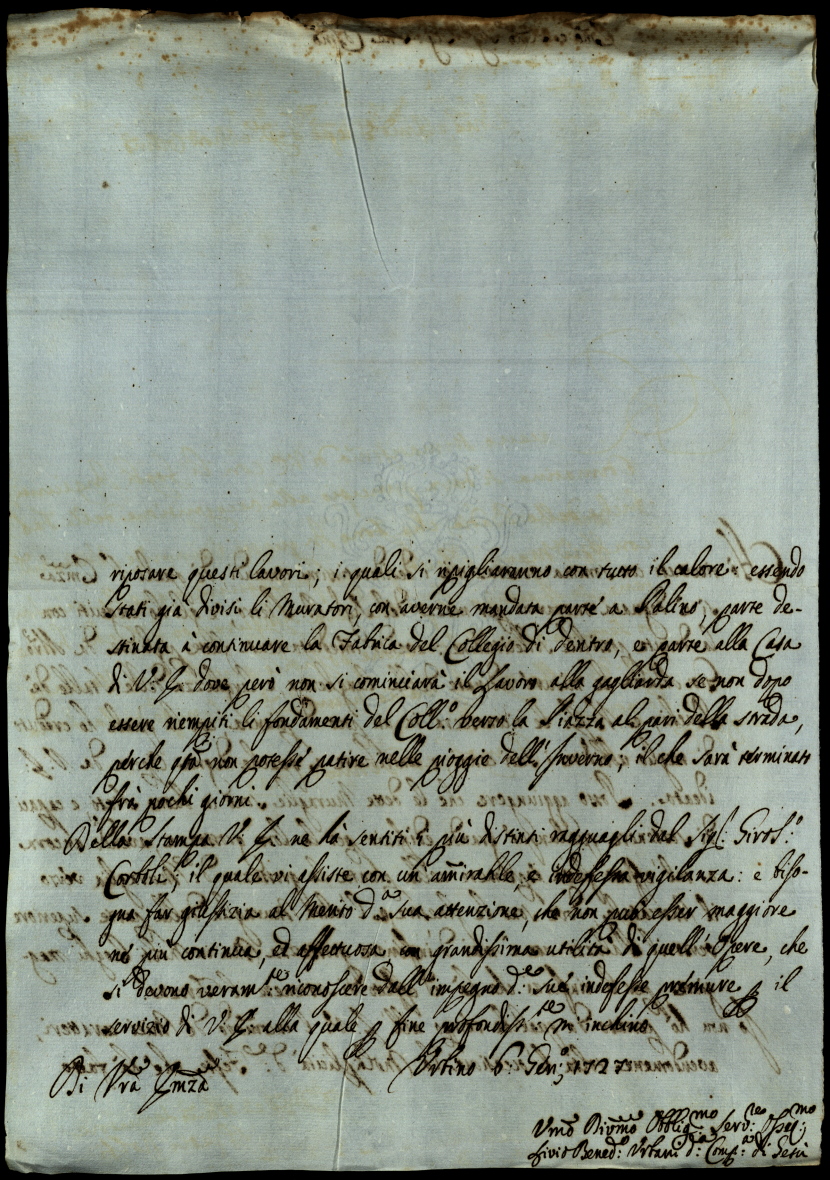 riposare questi lavori; i quali si ripigliaranno con tutto il calore: essendo
stati già divisi li Muratori, con averne mandata parte a Palino, parte de-
stinata à continuare la Fabrica del Collegio di dentro, e parte alla Casa
di V. E. dove però non si cominciarà il Lavoro alla gagliarda se non dopo
essere riempiti li fondamenti del Coll.º verso la Piazza al pari della strada,
perche non potesse patire nelle pioggie dell'Inverno; il che sarà terminato
frà pochi giorni.
Della Stampa V. E. ne hà sentiti i più distinti ragguagli dal Sig.: Girol.º
il quale vi assiste con un'ammirabile, e indefessa vigilanza: e biso-
gna far giustizia al merito d.ª sua attenzione, che non può esser maggiore
nè più continua, ed affettuosa con grandissima utilità di quell'Opere, che
si devono veram.te riconoscere dall'impegno d.e sue indefesse premure il
servizio di V. E. alla quale fine profondiss.te m'inchino
Di Vra Emza Urbino 6: Gen.º 1727
Vmo Divmo Obblig.mo Serv.re Osseq.mo
Livio Bened.º Urbani d.ª Comp.ª di Gesù